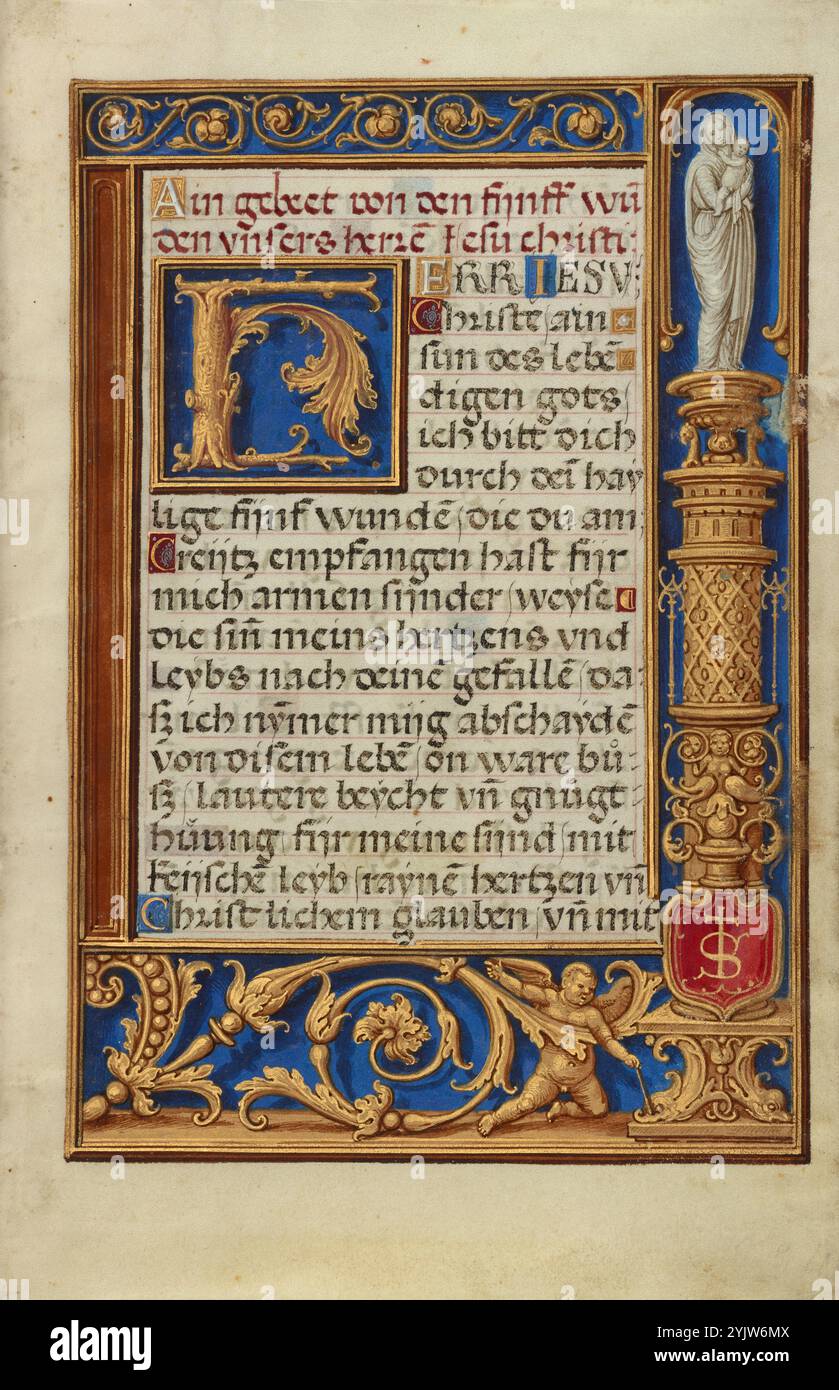 Ain gebeet von den fijnff wū
den vnsers herrē Jesu christi:
HERR IESV:
Christe/ain
sun des lebē
digen gots/
ich bitt dich
durch deī hay
lige fijnf wundē/die du am:
Creijtz empfangen hast fijr
mich armen sijnder/weyse
die siñ meins hertzens vnd
leybs nach deinē gefallē/da
sz ich nȳmer mijg abschaydē
von disem lebē/on ware bů:
sz/lautere beycht vñ gnůgt
hůung fijr meine sijnd/mit
keijschē leyb/raynē hertzen vñ
Christlichem glauben/vñ mit
IS
alamy
Image ID: 2YJW6MX
www.alamy.com